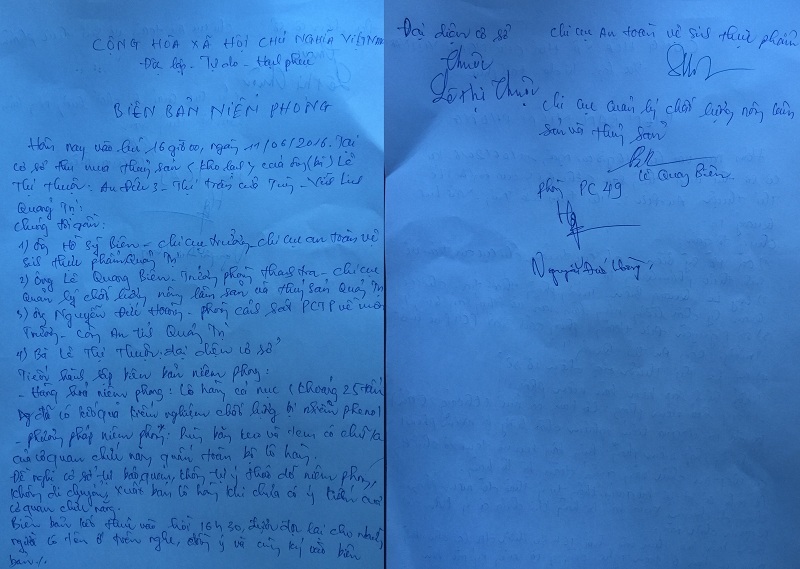 CỘNG HÒA XÃ HỘI CHỦ NGHĨA VIỆT NAM
Độc lập - Tự do - Hạnh phúc
BIÊN BẢN NIÊM PHONG
Hôm nay vào lúc 16 giờ 00, ngày 11/06/2016. Tại
cơ sở thu mua thủy sản (kho lạnh) của ông (bà) Lê
Thị Thuộc: An Đức 3 - Thị trấn cửa Tùng - Vĩnh Linh
Quảng Trị:
Chúng tôi gồm:
1) Ông Hồ Sỹ Biên - chi cục trưởng - chi cục an toàn vệ
sinh thực phẩm Quảng Trị
2) Ông Lê Quang Biên - Trưởng phòng thanh tra - chi cục
Quản lý chất lượng nông lâm sản và thủy sản Quảng Trị
3) Ông Nguyễn Đức Hoàng - phòng cảnh sát PCTP về môi
Trường - Công An tỉnh Quảng Trị
4) Bà Lê Thị Thuộc: đại diện cơ sở
Tiến hành lập biên bản niêm phong:
- Hàng hóa niêm phong: Lô hàng cá nục (khoảng 25 tấn
đã có kết quả kiểm nghiệm chất lượng bị nhiễm phenol
- phương pháp niêm phong: bằng keo và tem có chữ ký
của cơ quan chức năng quấn toàn bộ lô hàng.
Đề nghị cơ sở tự bảo quản, không tự ý tháo dỡ niêm phong,
không di chuyển, xuất bán lô hàng khi chưa có ý kiến của
cơ quan chức năng.
Biên bản kết thúc vào hồi 16h30, được đọc lại cho những
người có tên ở trên nghe, đồng ý và cùng ký vào biên
bản./.
Đại diện cơ sở
Thuộc
Lê Thị Thuộc
chi cục An toàn vệ sinh thực phẩm
chi cục quản lý chất lượng nông lâm
sản và thủy sản
Lê Quang Biên
phòng PC 49
Nguyễn Đức Hoàng